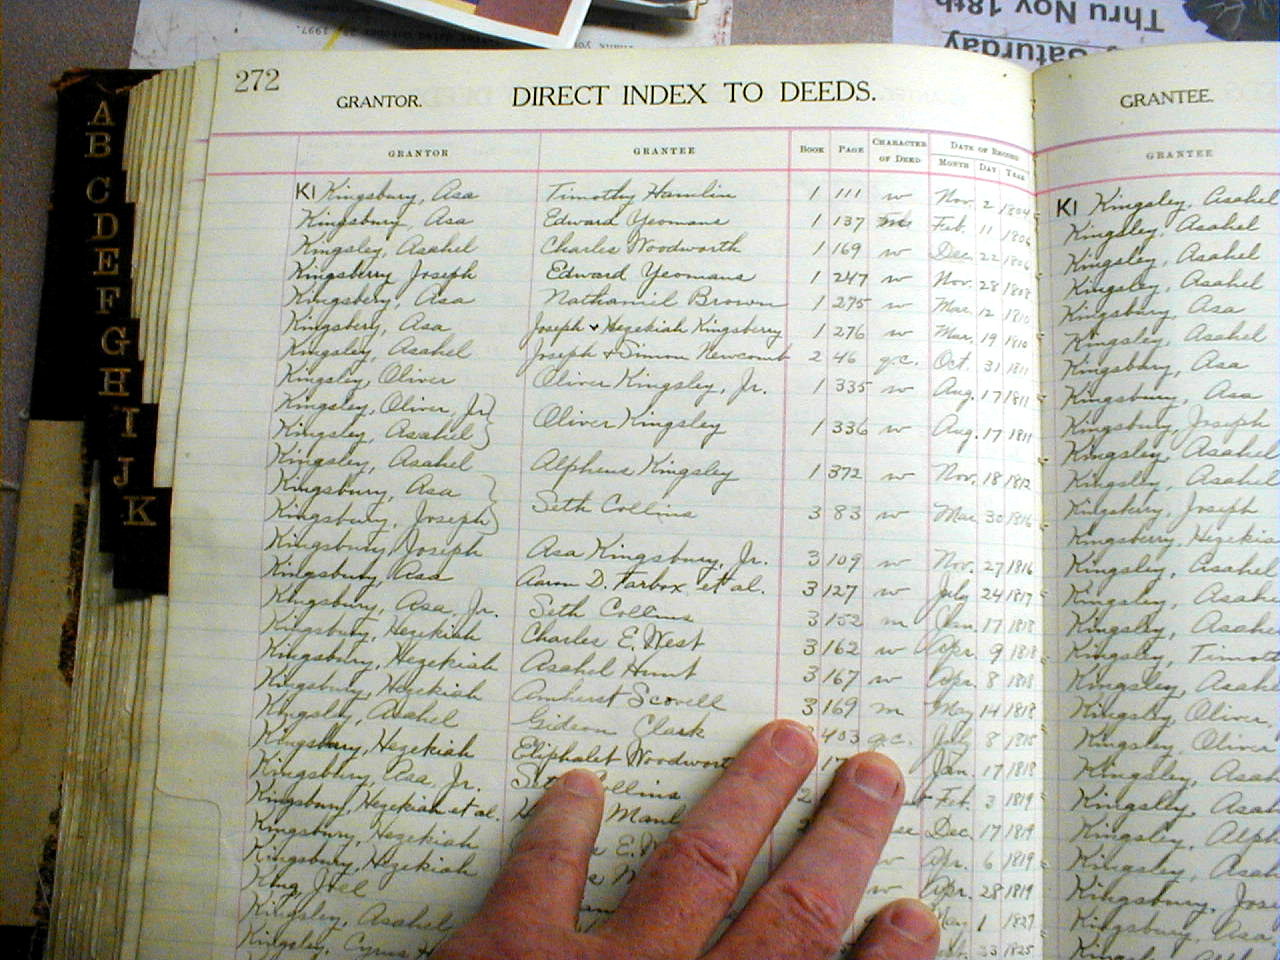 Thru Nov 18th
Saturday
272
GRANTOR.
DIRECT INDEX TO DEEDS.
GRANTEE.
GRANTOR GRANTEE BOOK PAGE CHARACTER OF DEED DATE OF RECORD MONTH DAY YEAR
GRANTEE
KI Kingsbury, Asa Timothy Hamlin 1 111 w Nov. 2 1804
Kingsbury, Asa Edward Yeomans 1 137 Feb. 11 1806
Kingsley, Asahel Charles Woodworth 1 169 w Dec. 22 1806
Kingsberry Joseph Edward Yeomans 1 247 w Nov. 28 1808
Kingsbery, Asa Nathaniel Brown 1 275 w Mar. 12 1810
Kingsbery, Asa Joseph + Hezekiah Kingsberry 1 276 w Mar. 19 1810
Kingsley, Asahel Joseph + Simon Newcomb 2 46 q.c. Oct. 31 1811
Kingsley, Oliver Oliver Kingsley, Jr. 1 335 w Aug. 17 1811
Kingsley, Oliver, Jr }
Kingsley, Asahel } Oliver Kingsley 1 336 w Aug. 17 1811
Kingsley, Asahel Alpheus Kingsley 1 372 w Nov. 18 1812
Kingsbury, Asa }
Kingsbury, Joseph } Seth Collins 3 83 w Mar 30 1816
Kingsbury, Joseph Asa Kingsbury, Jr. 3 109 w Nov. 27 1816
Kingsbury, Asa Aaron D. Farbox et al. 3 127 w July 24 1817
Kingsbury, Asa, Jr. Seth Collins 3 152 m Jan. 17 1818
Kingsbury, Hezekiah Charles E. West 3 162 w Apr. 9 1818
Kingsbury, Hezekiah Asahel Hunt 3 167 w Apr. 8 1818
Kingsbury, Hezekiah Amherst Scovell 3 169 m May 14 1818
Kingsley, Asahel Gideon Clark 403 q.c. 8
Kingsbury, Hezekiah Eliphalet Woodwort Jan. 17 1818
Kingsbury, Asa, Jr. Collins Feb. 3 1819
Kingsbury, Hezekiah et al. Dec. 17 1819
Kingsbury, Hezekiah Apr. 6 1819
Kingsbury, Hezekiah w Apr. 28 1819
King Joel Mar. 1 1827
Kingsley, Asahel 1825
Kingsley, Cyrus
KI Kingsley, Asahel
Kingsley, Asahel
Kingsley, Asahel
Kingsley, Asahel
Kingsbury, Asa
Kingsley, Asahel
Kingsbury, Asa
Kingsbury, Asa
Kingsbury, Joseph
Kingsley, Asahel
Kingsley, Asahel
Kingsbery, Joseph
Kingsberry, Hezekia
Kingsley, Asahel
Kingsley, Asahel
Kingsley, Asahe
Kingsley, Timot
Kingsley, Asah
Kingsley, Oliver,
Kingsley, Oliver
Kingsley, Asah
Kingsley, Alph
Kingsley, Asa
Kingsbury, Jose
Kingsbury, Asa,
A
B
C
D
E
F
G
H
I
J
K